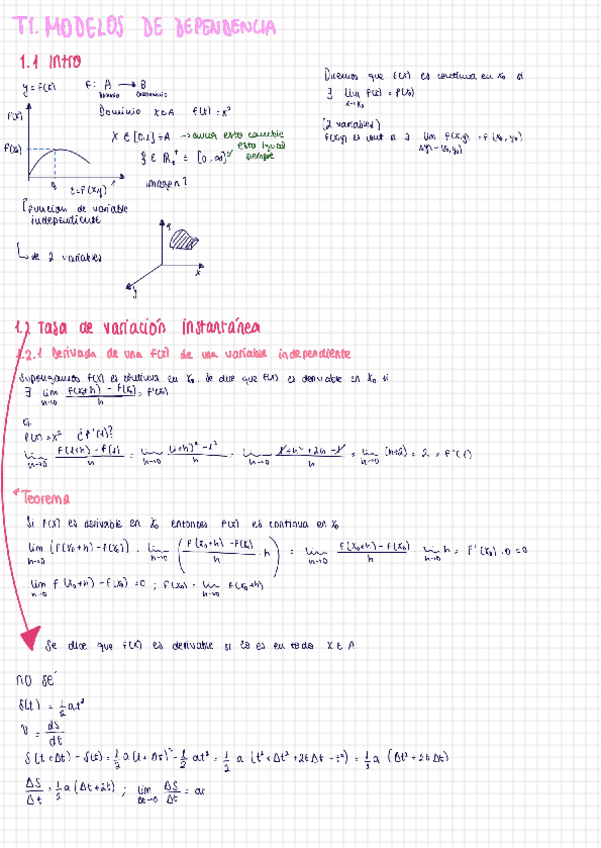 T1. MODELOS DE DEPENDENCIA
1.1 Intro
y = f(x) f: A → B
Dominio
Dominio x ∈ A f(x) = x²
f(x)
f(x₀)
x ∈ [0,1] = A →
esto igual
siempre
imagen?
z = f(x,y)
x
Función de variable
independiente
↳ de 2 variables
z
x
y
Diremos que f(x) es continua en x₀ si
∃ lim f(x) = f(x₀)
x→x₀
(2 variables)
f(x,y) es cont si ∃ lim f(x,y) = f(x₀,y₀)
1.2 Tasa de variación instantánea
1.2.1 Derivada de una f(x) de una variable independiente
Supongamos f(x) es continua en x₀. Se dice que f(x) es derivable en x₀ si
∃ lim h→0 (f(x₀+h) - f(x₀))/h = f'(x₀)
f(x) = x² ¿f'(1)?
lim h→0 (f(1+h) - f(1))/h = lim h→0 ((1+h)² - 1²)/h = lim h→0 (1+h²+2h-1)/h = lim h→0 (h+2) = 2 = f'(1)
*Teorema
Si f(x) es derivable en x₀ entonces f(x) es continua en x₀
lim h→0 (f(x₀+h) - f(x₀)) = lim h→0 ((f(x₀+h) - f(x₀))/h · h) = lim h→0 (f(x₀+h) - f(x₀))/h · lim h→0 h = f'(x₀) · 0 = 0
lim h→0 f(x₀+h) - f(x₀) = 0 ; f(x₀) = lim h→0 f(x₀+h)
Se dice que f(x) es derivable si lo es en todo x ∈ A
no sé
s(t) = 1/2 at²
v = ds/dt
s(t+Δt) - s(t) = 1/2 a(t+Δt)² - 1/2 at² = 1/2 a (t²+Δt²+2tΔt-t²) = 1/2 a (Δt²+2tΔt)
Δs/Δt = 1/2 a (Δt+2t) ; lim Δt→0 Δs/Δt = at